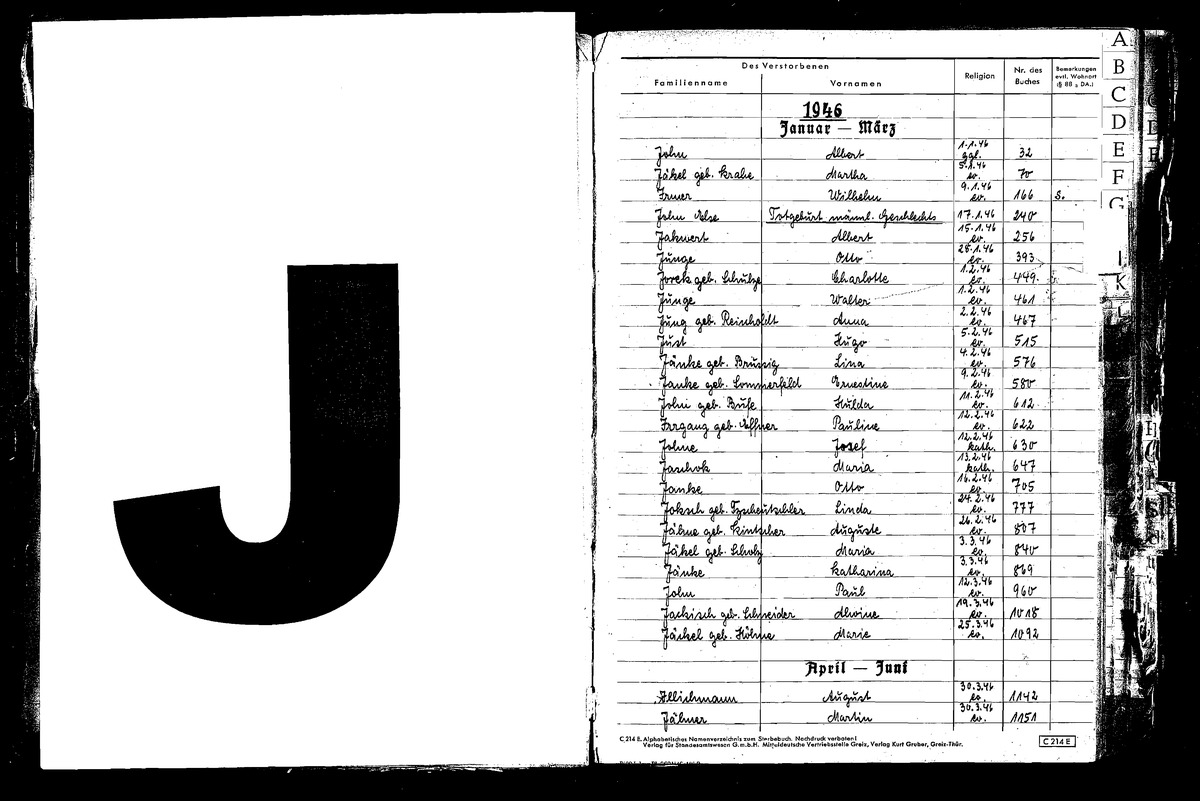 J
A
B
C
D
E
F
G
I
K
L
Des Verstorbenen
Familienname Vornamen Religion Nr. des Buches Bemerkungen evtl. Wohnort (§ 88 2 DA.)
1946
Januar — März
John Albert 1.1.46 ggl. 32
Jäkel geb. Krabe Martha 5.1.46 ev. 70
Irmer Wilhelm 9.1.46 ev. 166 s.
John Totgeburt männl. Geschlechts 17.1.46 240
Jakwert Albert 15.1.46 ev. 256
Junge Otto 28.1.46 ev. 393
Joreck geb. Schulze Charlotte 1.2.46 ev. 449.
Junge Walter 1.2.46 ev. 461
Jung geb. Reinholdt Anna 2.2.46 ev. 467
Just Hugo 5.2.46 ev. 515
Jänke geb. Brussig Lina 4.2.46 ev. 576
Janke geb. Sommerfeld Ernestine 9.2.46 ev. 580
John geb. Buse Hulda 11.2.46 ev. 612
Irrgang geb. Pauline 12.2.46 ev. 622
Johne Josef 12.2.46 kath. 630
Jaschok Maria 13.2.46 kath. 647
Janke Otto 16.2.46 ev. 705
Joksch geb. Tzscheutschler Linda 24.2.46 ev. 777
Jähne geb. Kintscher Auguste 26.2.46 ev. 807
Jäkel geb. Scholz Maria 3.3.46 ev. 840
Jänke Katharina 3.3.46 ev. 869
John Paul 12.3.46 ev. 960
Jackisch geb. Schneider Alwine 19.3.46 ev. 1018
Jäckel geb. Höhne Marie 25.3.46 ev. 1092
April — Juni
Illichmann August 30.3.46 ev. 1142
Jähner Martin 30.3.46 ev. 1151
C 214 E. Alphabetisches Namenverzeichnis zum Sterbebuch. Nachdruck verboten!
Verlag für Standesamtswesen G.m.b.H. Mitteldeutsche Vertriebsstelle Greiz, Verlag Kurt Gruber, Greiz-Thür.
C 214 E